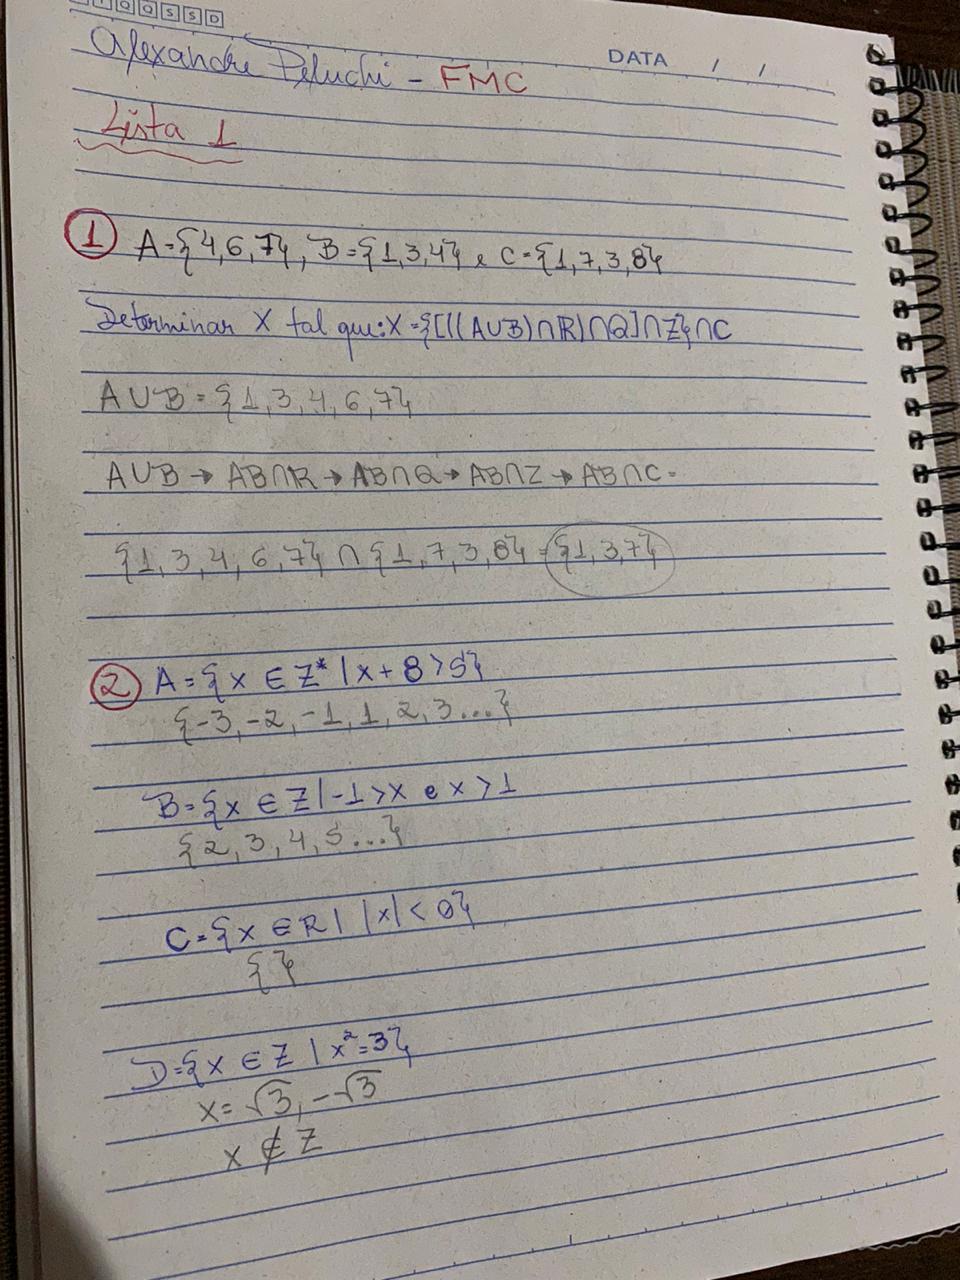 Q Q S S D
DATA / /
Alexandre Peluchi - FMC
Lista 1
1 A={4,6,7}, B={1,3,4} e C={1,7,3,8}
Determinar X tal que: X={[((A∪B)∩R)∩Q]∩Z}∩C
A∪B={1,3,4,6,7}
A∪B → AB∩R → AB∩Q → AB∩Z → AB∩C =
{1,3,4,6,7} ∩ {1,7,3,8} = {1,3,7}
2 A={x ∈ Z* | x+8>5}
{-3,-2,-1,1,2,3...}
B={x ∈ Z | -1>x e x>1
{2,3,4,5...}
C={x ∈ R | |x|<0}
{}
D={x ∈ Z | x²=3}
x=√3,-√3
x ∉ Z